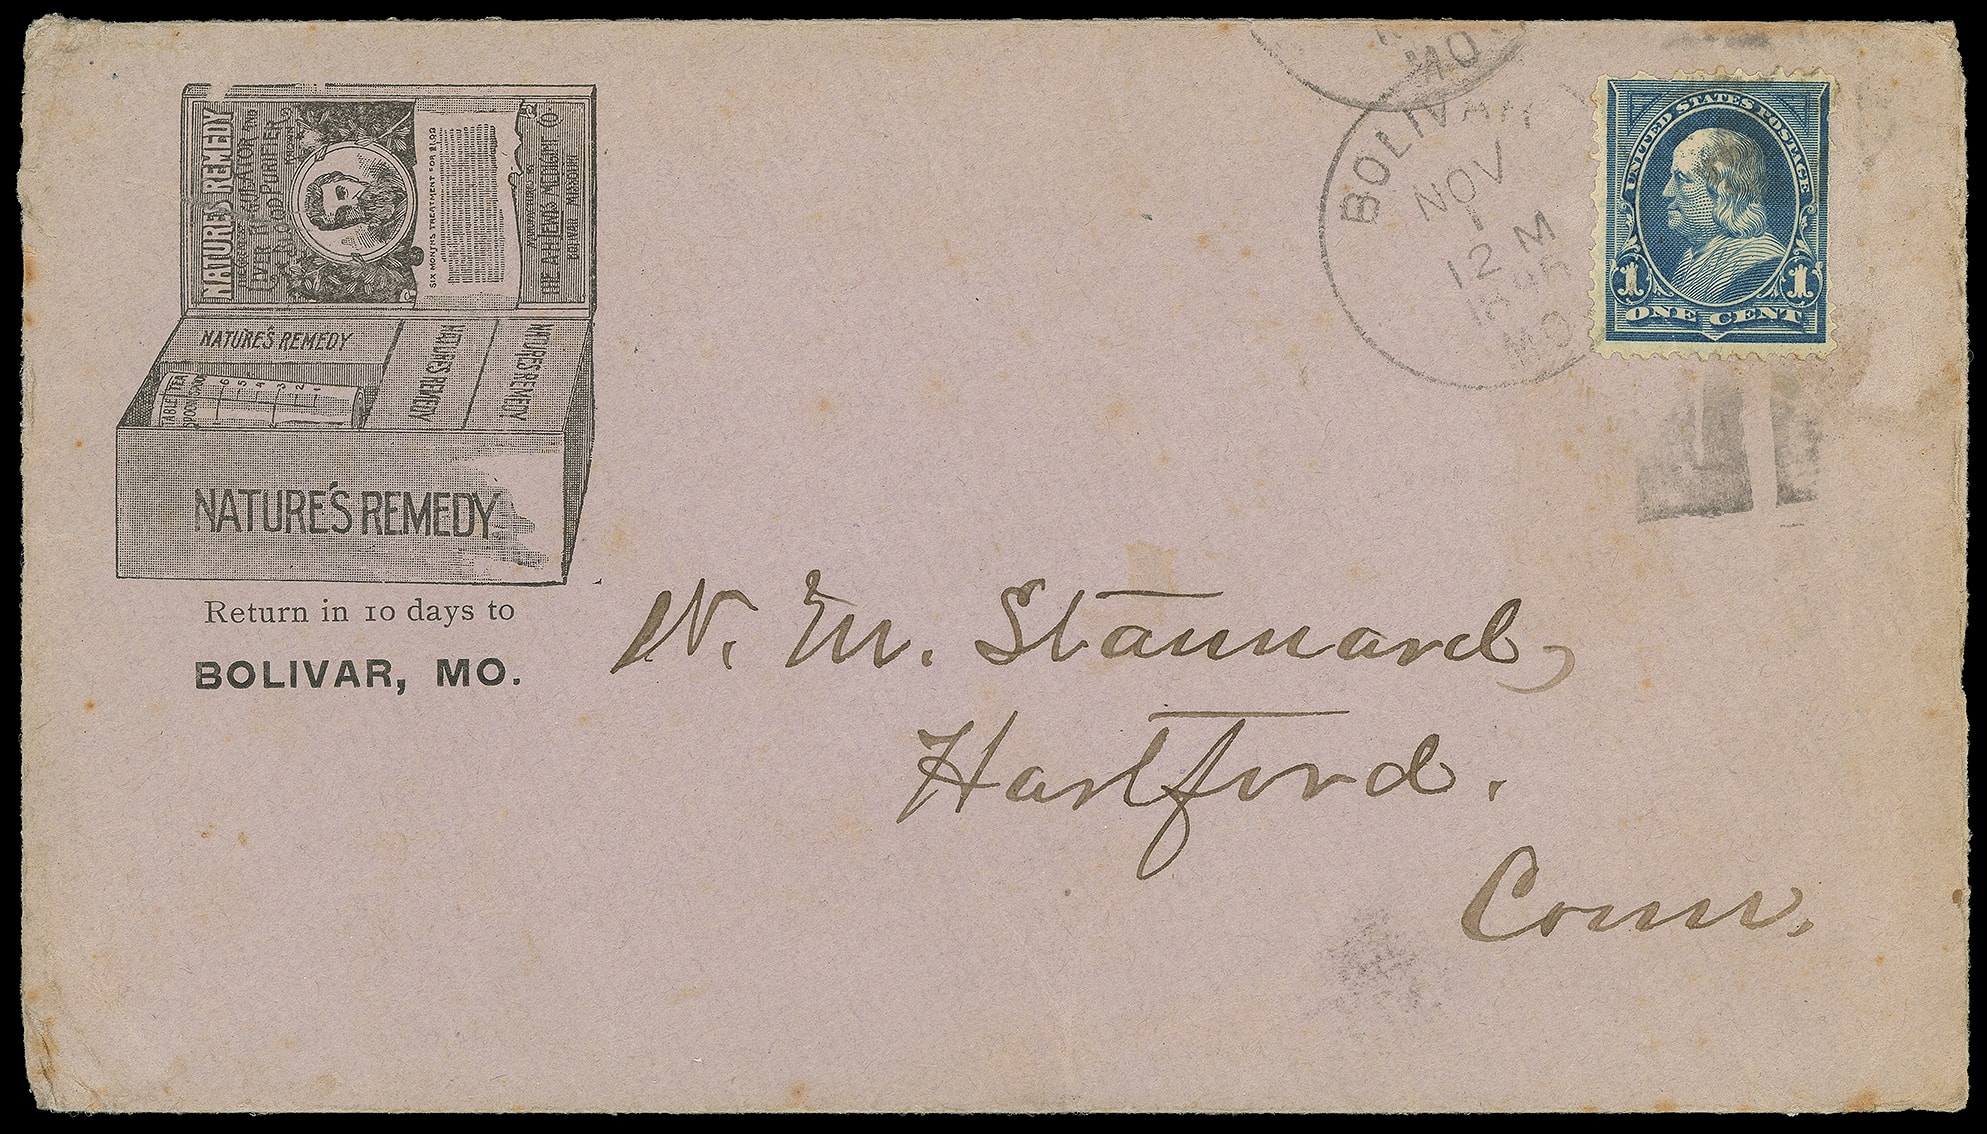 NATURE'S REMEDY
LIVER REGULATOR AND
BLOOD PURIFIER
SIX MONTHS TREATMENT FOR $1.00
THE A.H. LEWIS MEDICINE CO.
BOLIVAR MISSOURI
NATURE'S REMEDY
NATURE'S REMEDY
NATURE'S REMEDY
TABLE TEA
SPOON SPOON
6 5 4 3 2 1
NATURE'S REMEDY
Return in 10 days to
BOLIVAR, MO.
MO
BOLIVAR
NOV
1
12 M
1895
MO
UNITED STATES POSTAGE
1 1
ONE CENT
W. M. Stannard,
Hartford.
Conn.